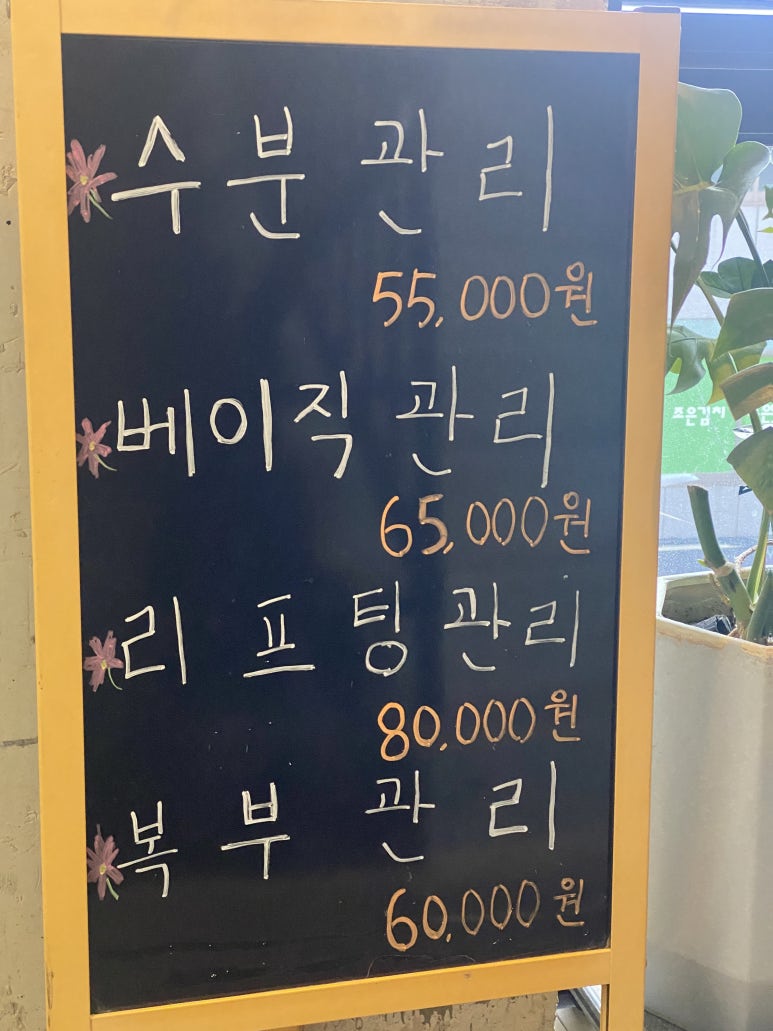 수분관리
55,000원
베이직관리
65,000원
리프팅관리
80,000원
복부관리
60,000원
조은김치